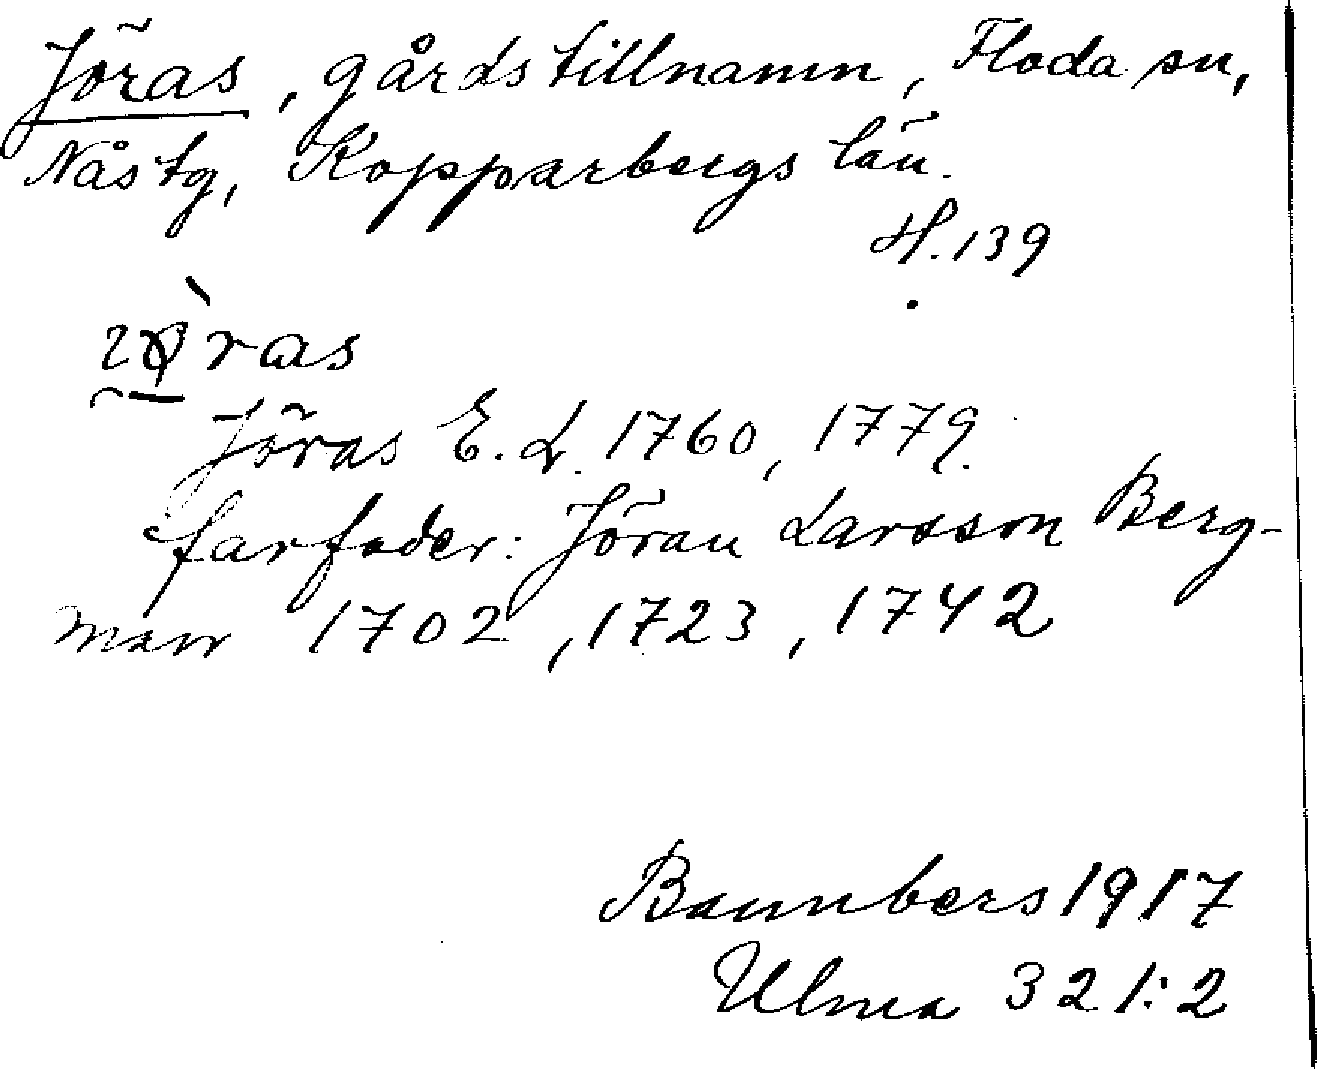 Jöras, gårdstillnamn, Floda sn,
Nås tg, Kopparbergs län.
H. 139
Jöras E. L. 1760, 1779.
farfader: Jöran Larsson Berg-
man 1702, 1723, 1742
Bannbers 1917
Ulma 321:2